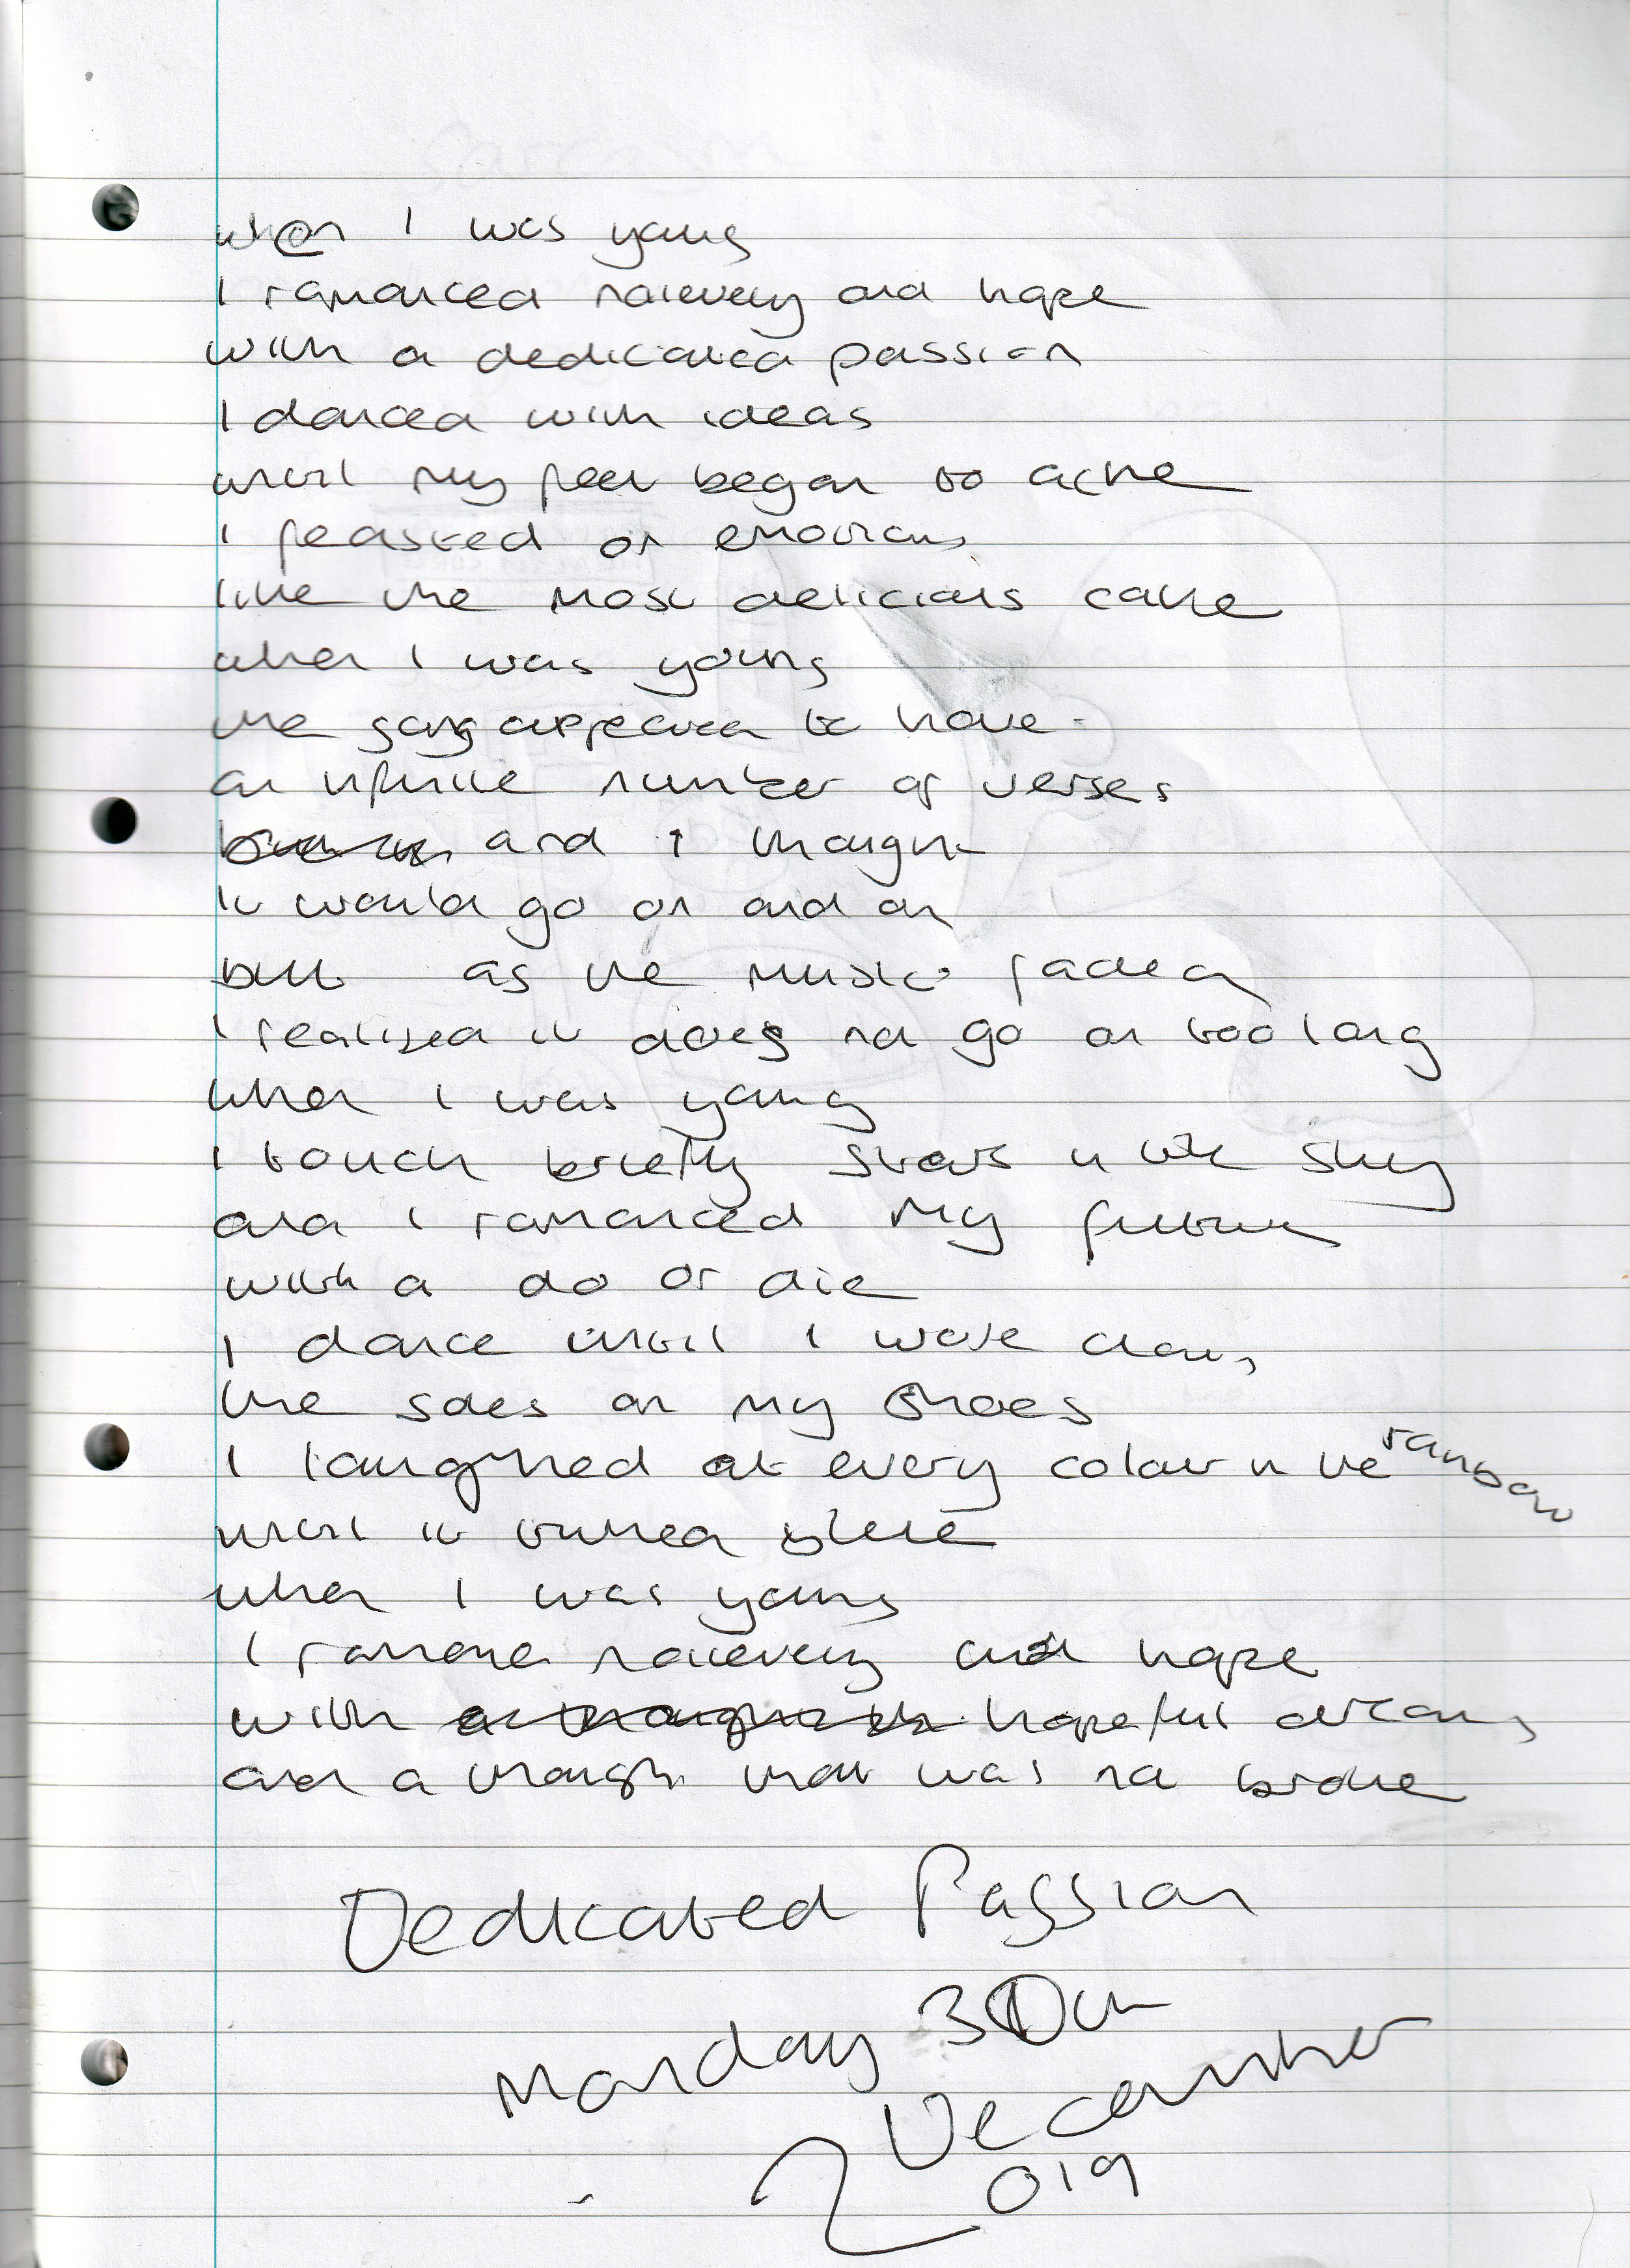 when I was young
I romanced naievety and hope
with a dedicated passion
I danced with ideas
until my feet began to ache
I feasted on emotions
like the most delicious cake
when I was young
the song appeared to have
an infinite number of verses
and I thought
it would go on and on
but as the music faded
I realised it does not go on too long
when I was young
I touch briefly stars in the sky
and I romanced my future
with a do or die
I dance until I wore down
the soles on my shoes
I laughed at every colour in the rainbow
until it turned blue
when I was young
I romance naievety and hope
with hopeful dreams
and a thought that was not broke
Dedicated Passion
Monday 30th
December
2019